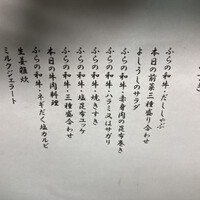 ふらの和牛・だししゃぶ
本日の前菜三種盛り合わせ
よしうしのサラダ
ふらの和牛・赤身肉の昆布巻き
ふらの和牛・ハラミ又はサガリ
ふらの和牛・焼きすき
ふらの和牛・塩昆布ユッケ
ふらの和牛・三種盛合わせ
本日の牛肉料理
ふらの和牛・ネギだく塩カルビ
生姜雑炊
ミルクジェラート